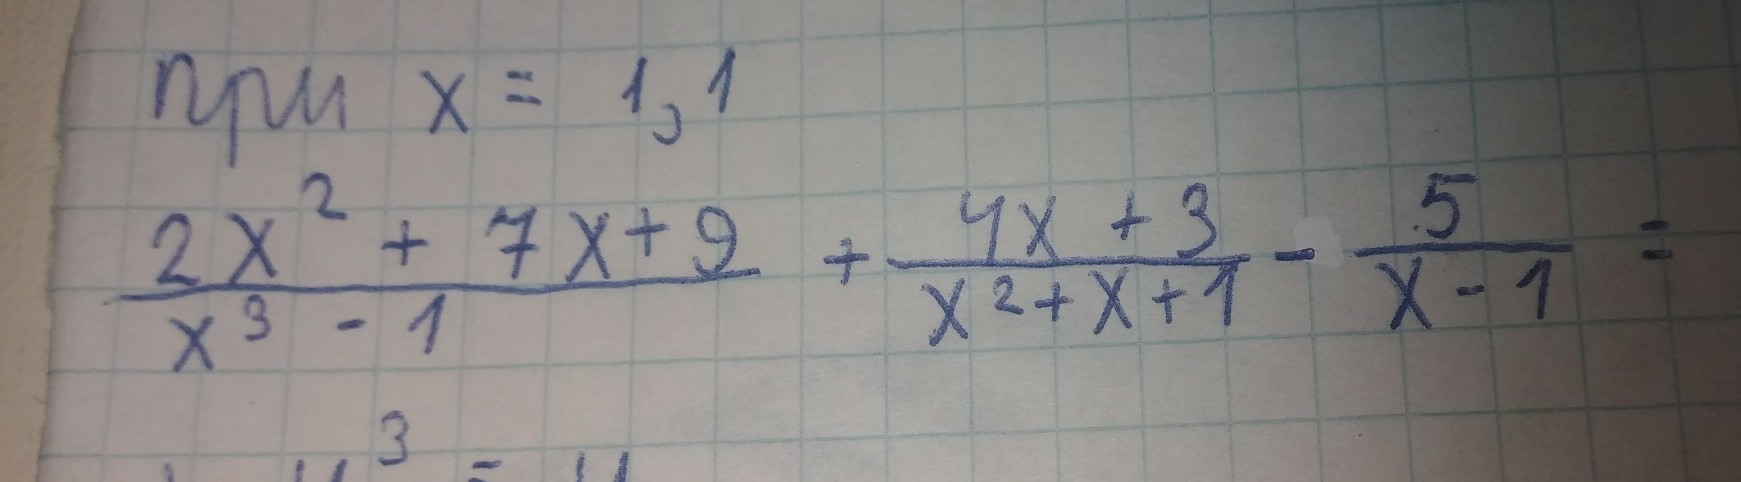 при x = 1,1
(2x² + 7x + 9)/(x³ - 1) + (4x + 3)/(x² + x + 1) - 5/(x - 1) =